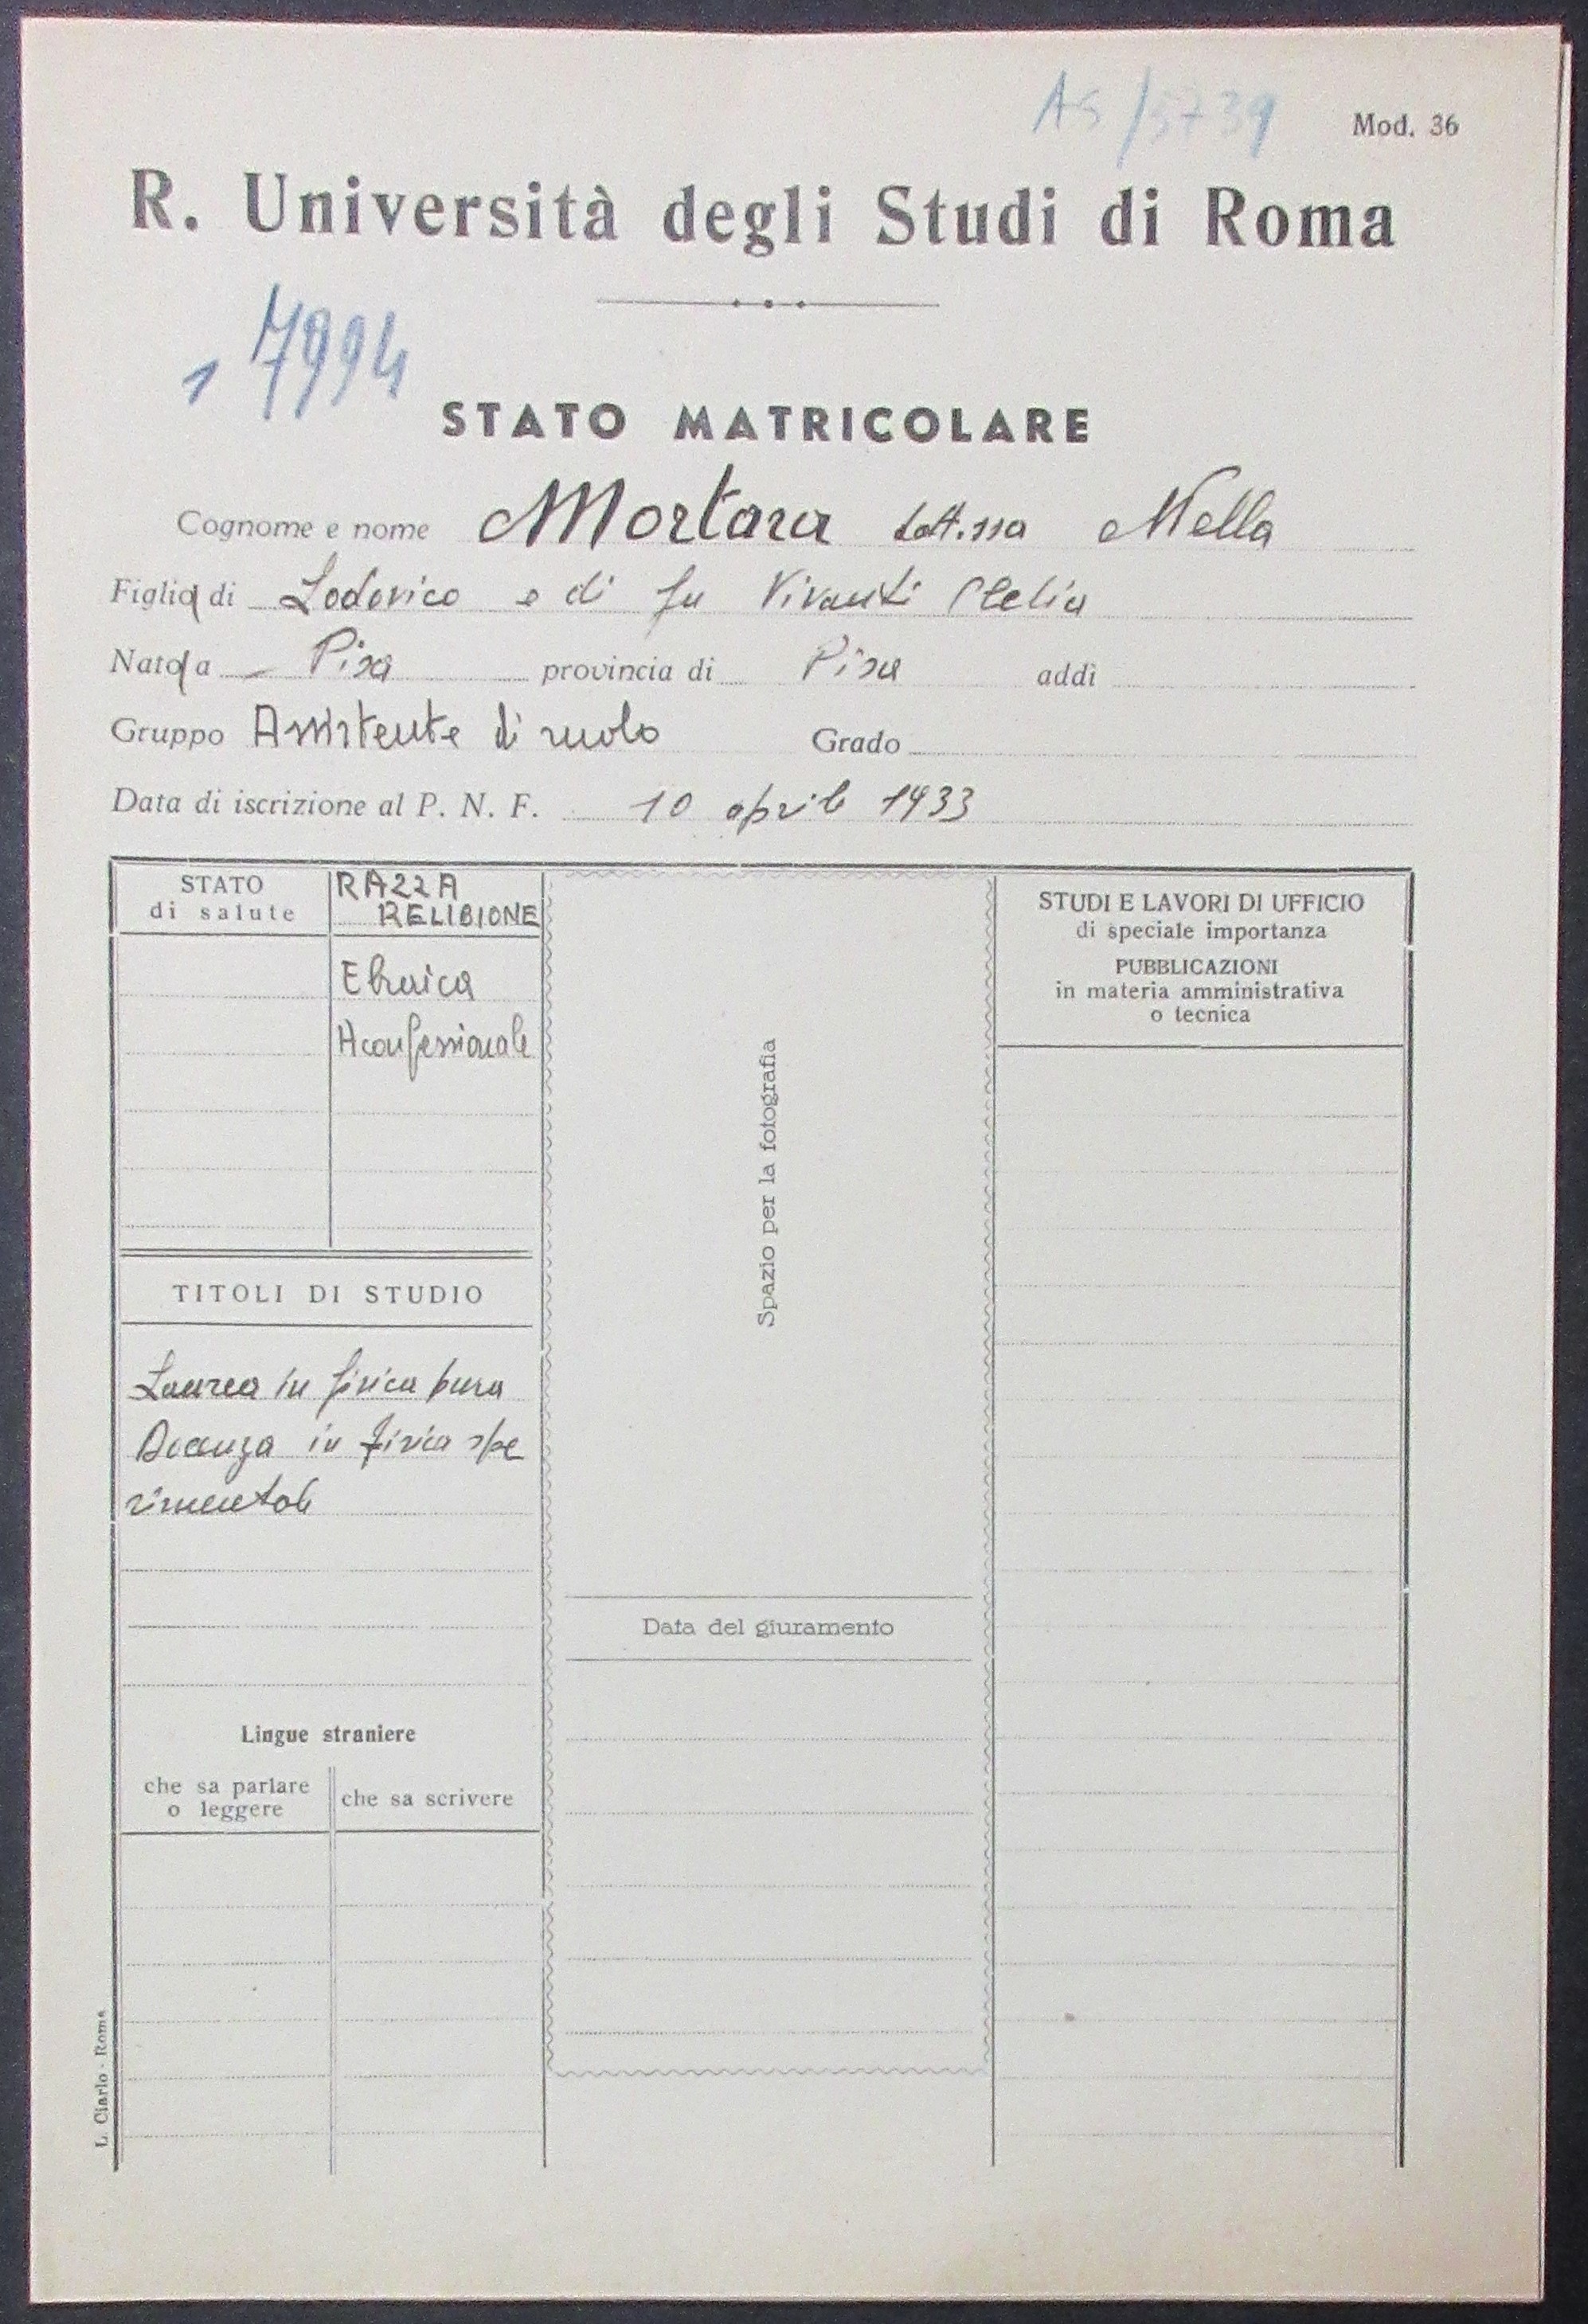 AS/5739
Mod. 36
R. Università degli Studi di Roma
17994
STATO MATRICOLARE
Cognome e nome Mortara dott.ssa Nella
Figlia di Lodovico e di fu Vivanti Clelia
Nata a Pisa provincia di Pisa addì
Gruppo Assistente di ruolo Grado
Data di iscrizione al P. N. F. 10 aprile 1933
STATO
di salute
RAZZA
RELIGIONE
Ebraica
Aconfessionale
TITOLI DI STUDIO
Laurea in fisica pura
Docenza in fisica spe
rimentale
Lingue straniere
che sa parlare
o leggere
che sa scrivere
Spazio per la fotografia
Data del giuramento
STUDI E LAVORI DI UFFICIO
di speciale importanza
PUBBLICAZIONI
in materia amministrativa
o tecnica
L. Ciarlo - Roma